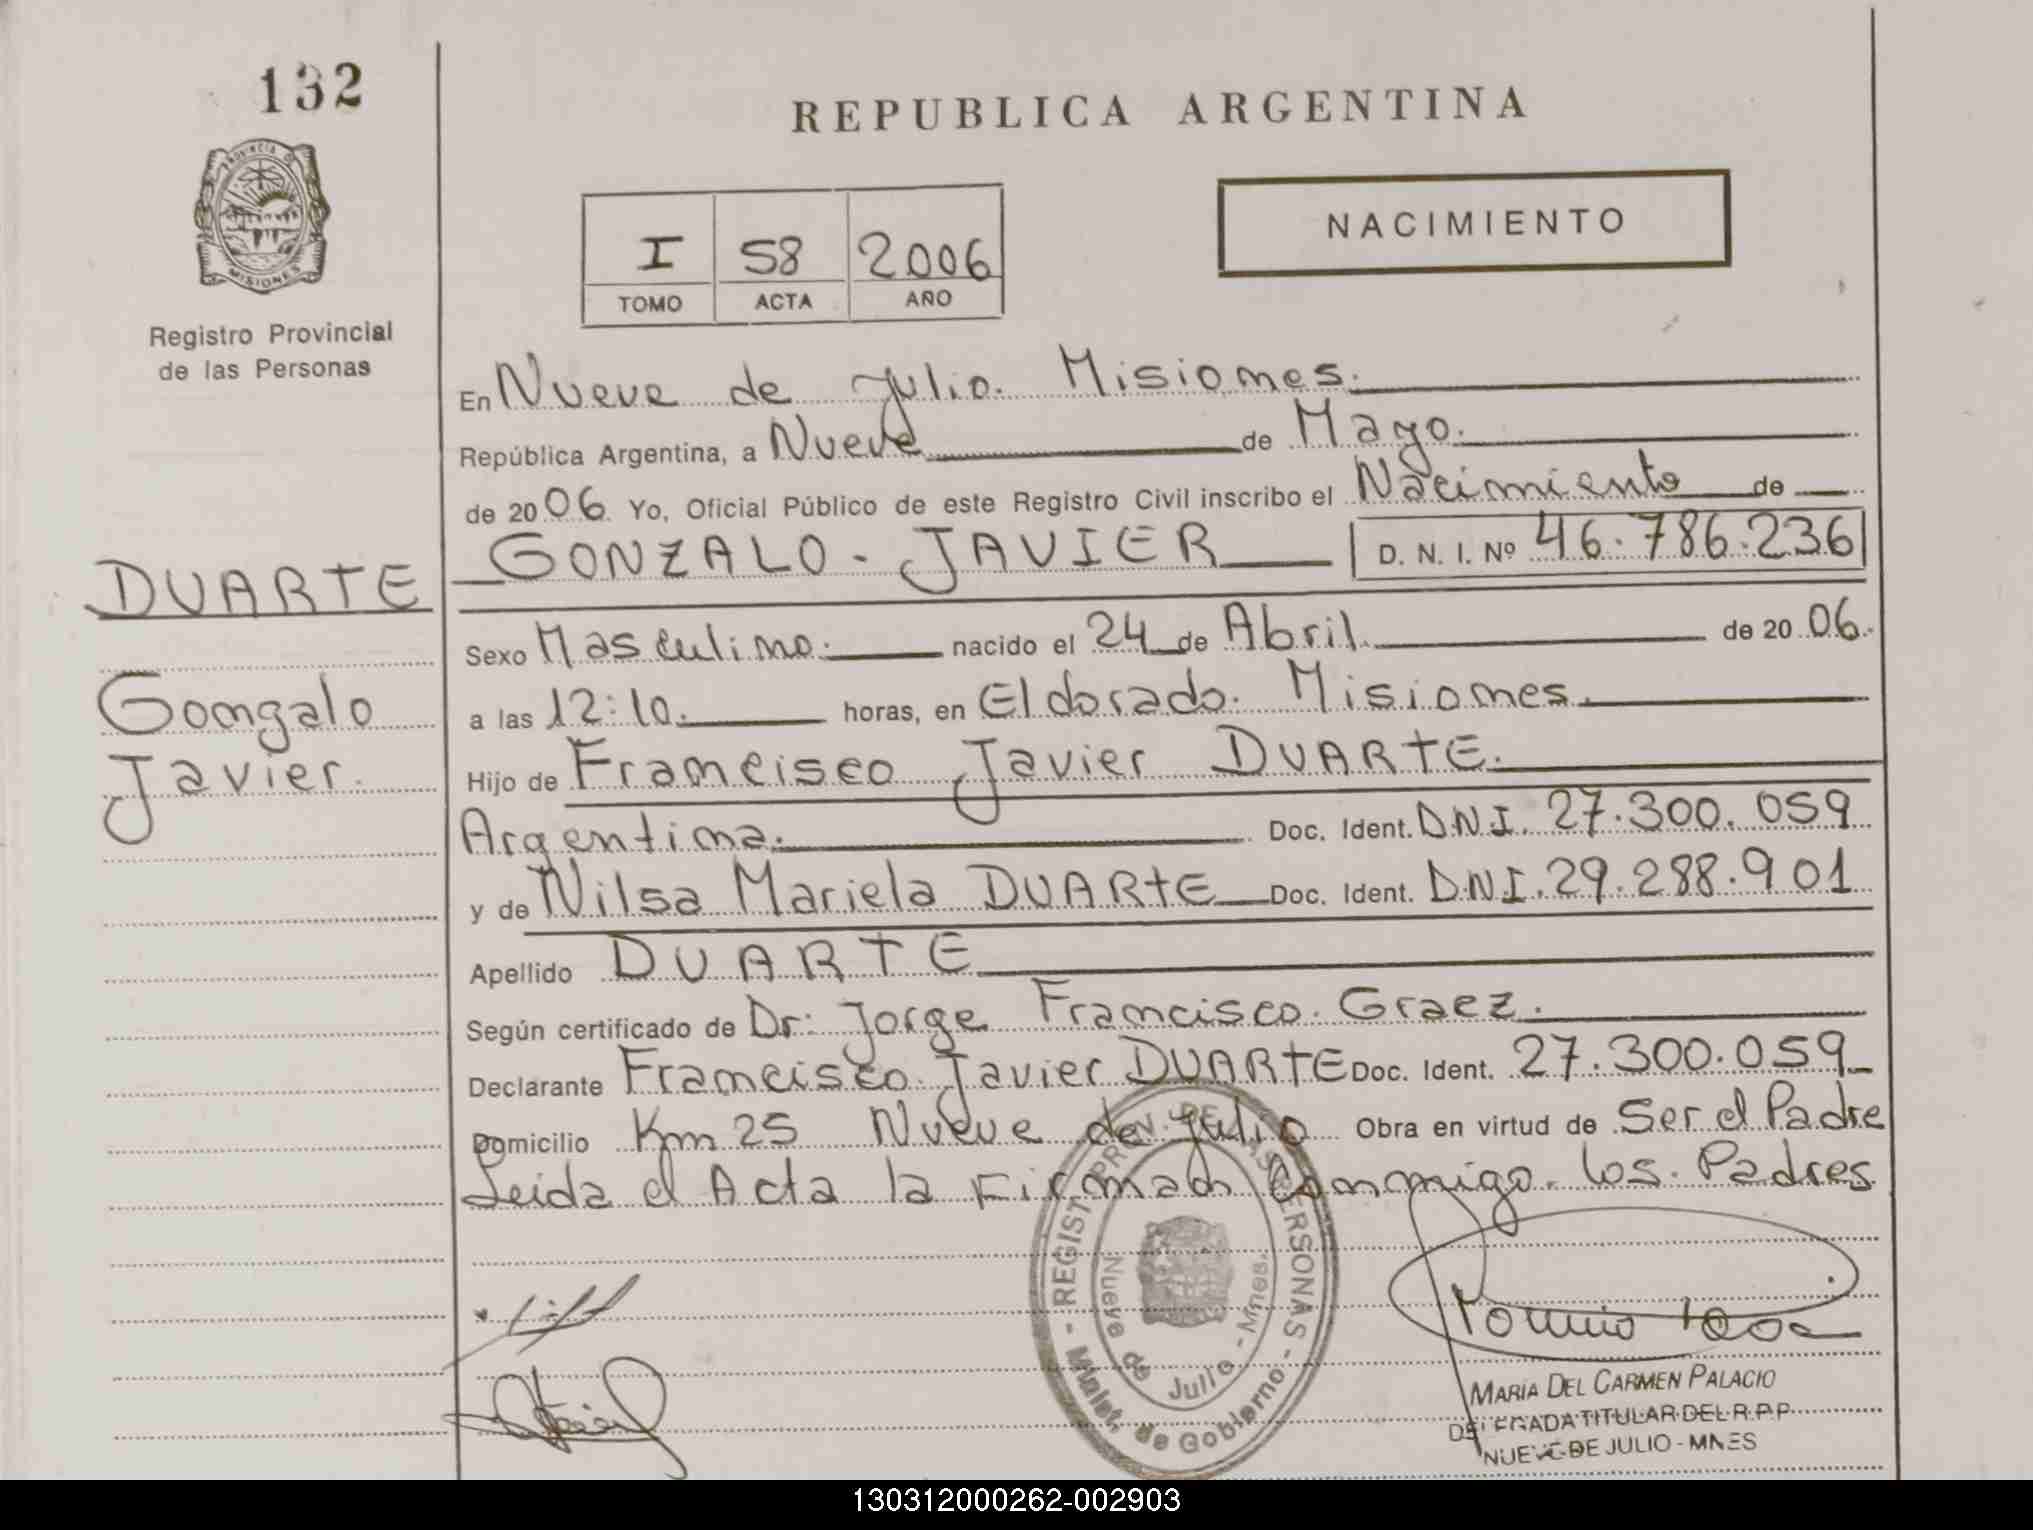 132
REPUBLICA ARGENTINA
PROVINCIA DE
MISIONES
Registro Provincial
de las Personas
I 58 2006
TOMO ACTA AÑO
NACIMIENTO
En Nueve de Julio. Misiones.
República Argentina, a Nueve de Mayo.
de 2006. Yo, Oficial Público de este Registro Civil inscribo el Nacimiento de
GONZALO - JAVIER D. N. I. Nº 46.786.236
DUARTE
Gonzalo
Javier.
Sexo Masculino. nacido el 24 de Abril. de 2006.
a las 12:10. horas, en Eldorado. Misiones.
Hijo de Francisco Javier DUARTE.
Argentina. Doc. Ident. DNI. 27.300.059
y de Nilsa Mariela DUARTE Doc. Ident. DNI. 29.288.901
Apellido DUARTE
Según certificado de Dr: Jorge Francisco. Graez.
Declarante Francisco Javier DUARTE Doc. Ident. 27.300.059
Domicilio Km 25 Nueve de Julio Obra en virtud de Ser el Padre
Leida el Acta la Firman Conmigo. los. Padres
REGIST. PROV. DE LAS PERSONAS
Nueve de Julio - Mnes.
Minist. de Gobierno
MARIA DEL CARMEN PALACIO
DELEGADA TITULAR DEL R.P.P.
NUEVE DE JULIO - MNES
130312000262-002903